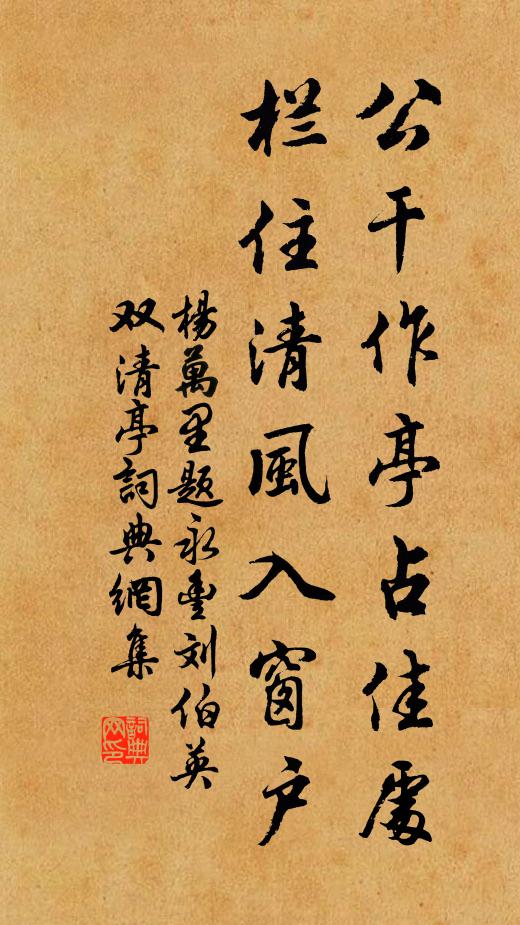 公干作亭占佳處
栏住清風入窗户
楊萬里题永豊刘伯英
双清亭詞典網集
詞典网印